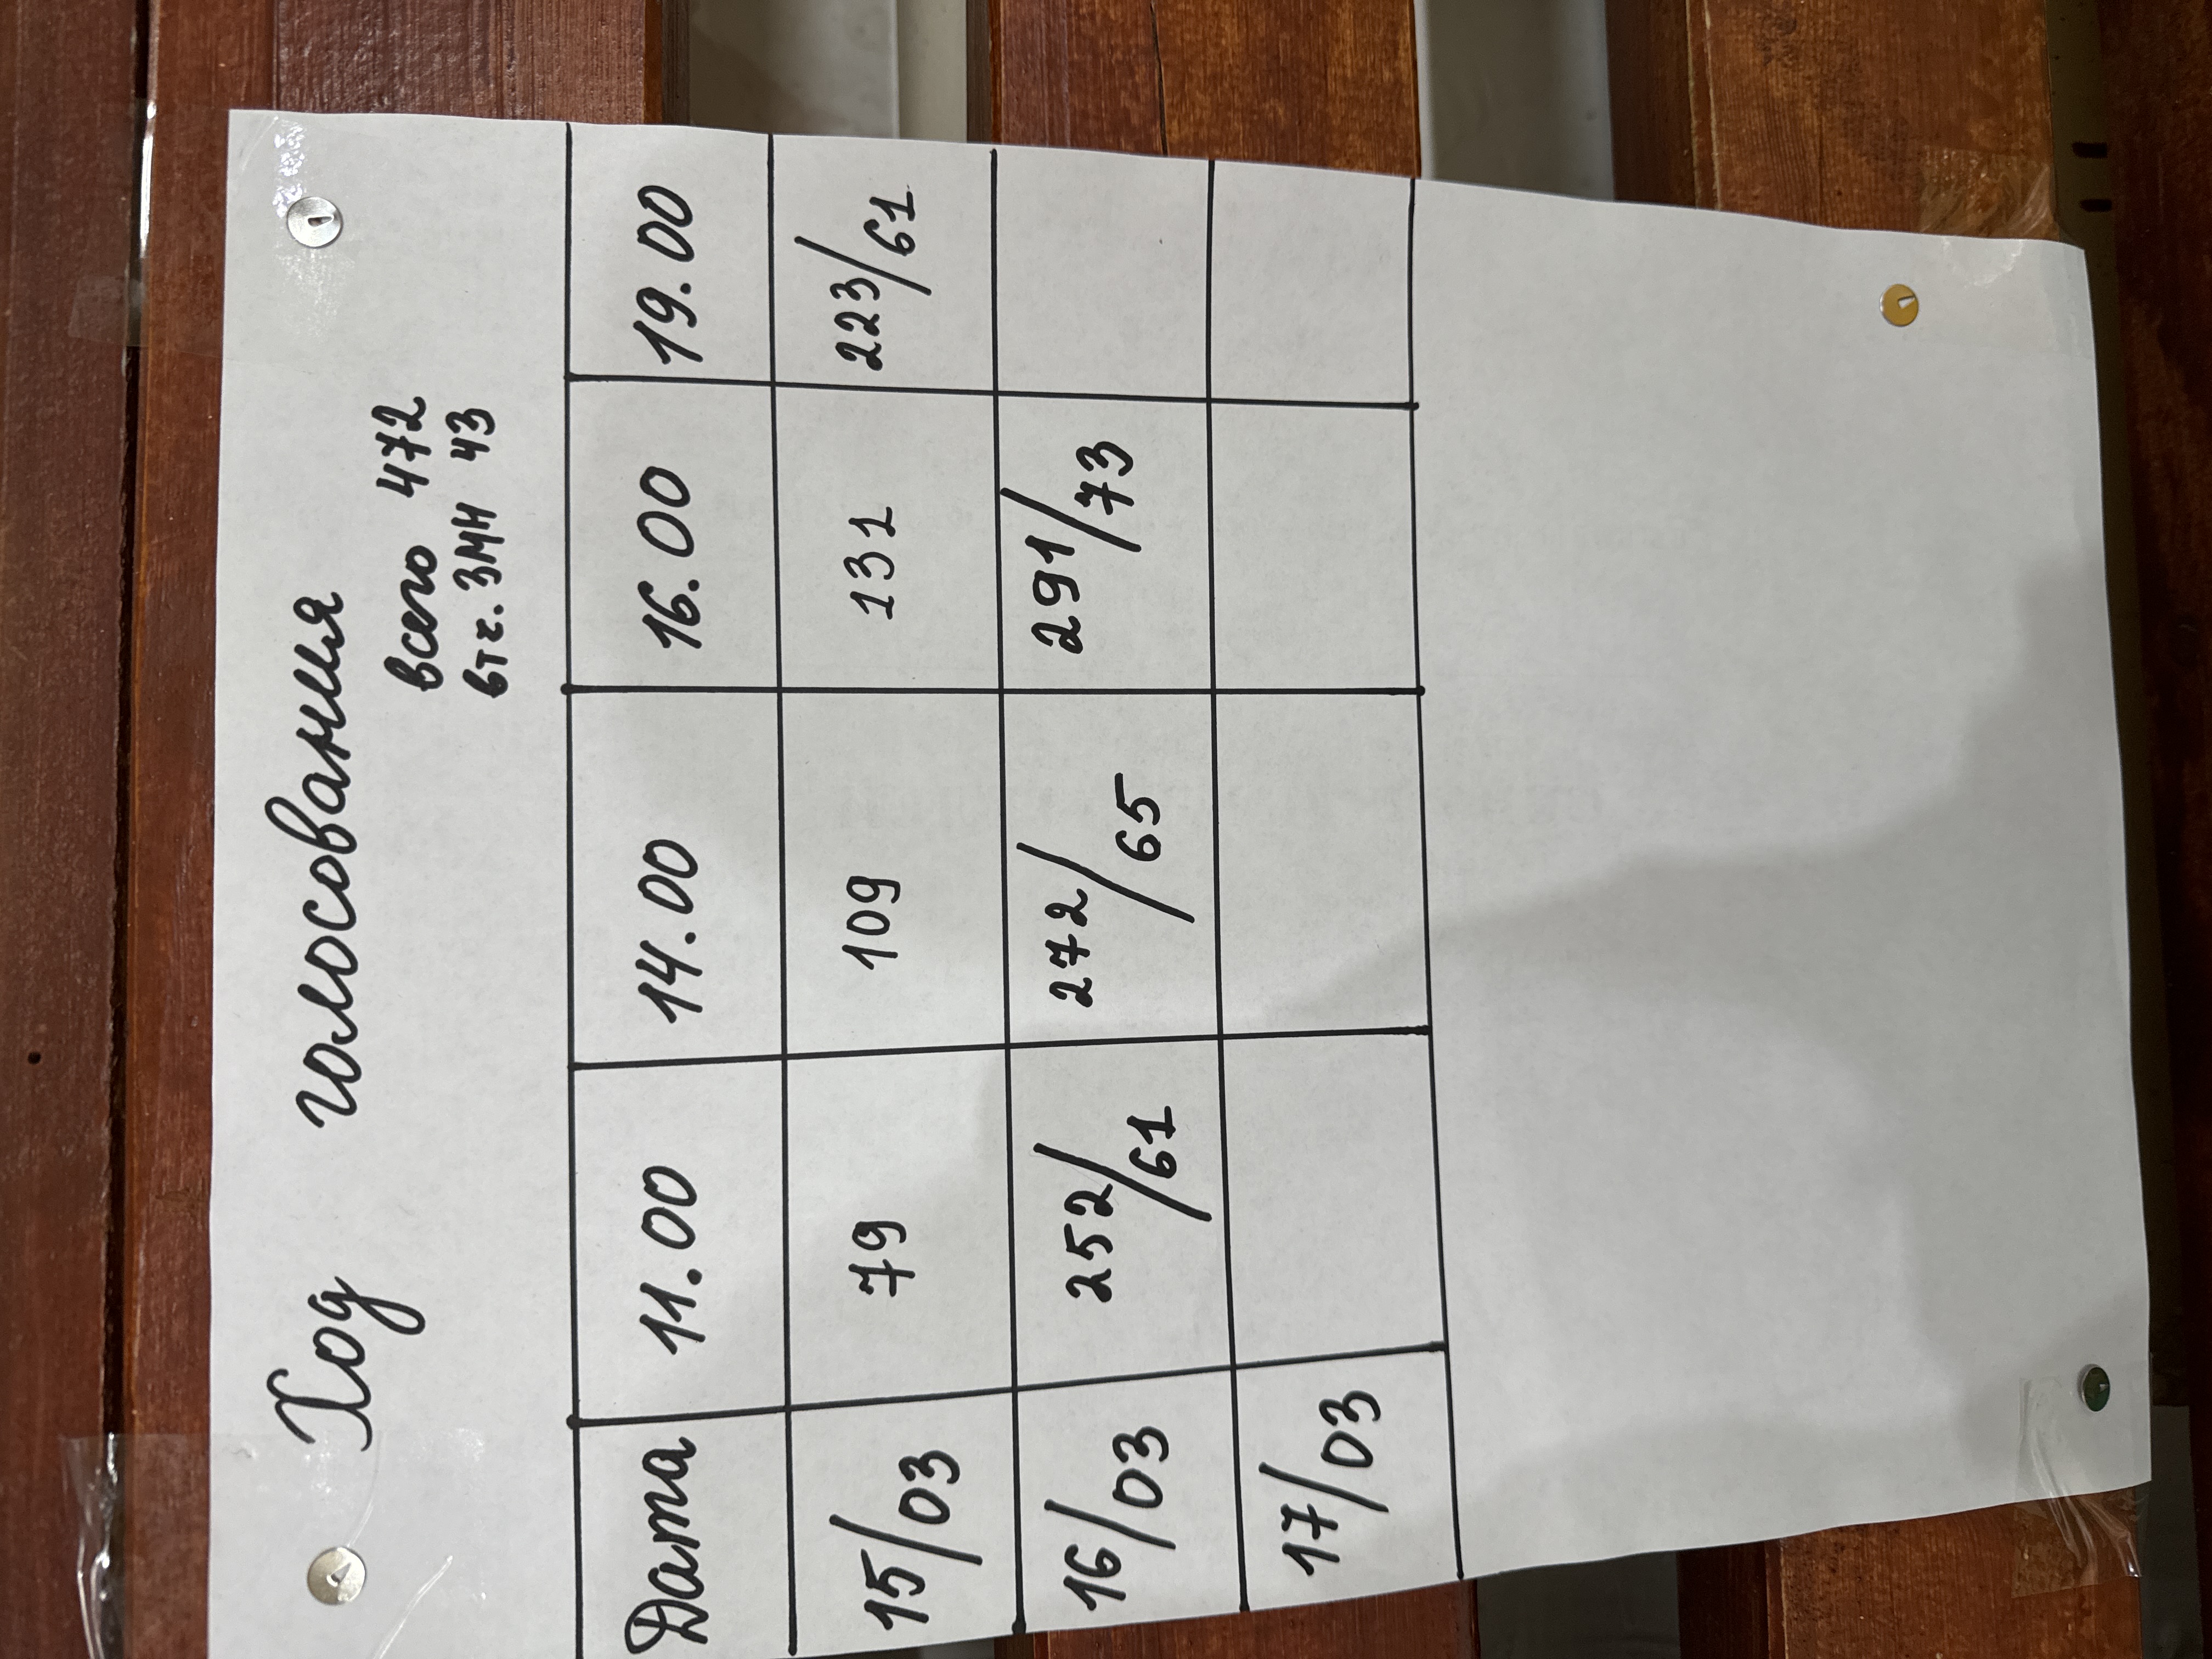 Ход голосования
всего 472
вт ч. ЗМН 43
Дата 11.00 14.00 16.00 19.00
15/03 79 109 131 223/61
16/03 252/61 272/65 291/73
17/03